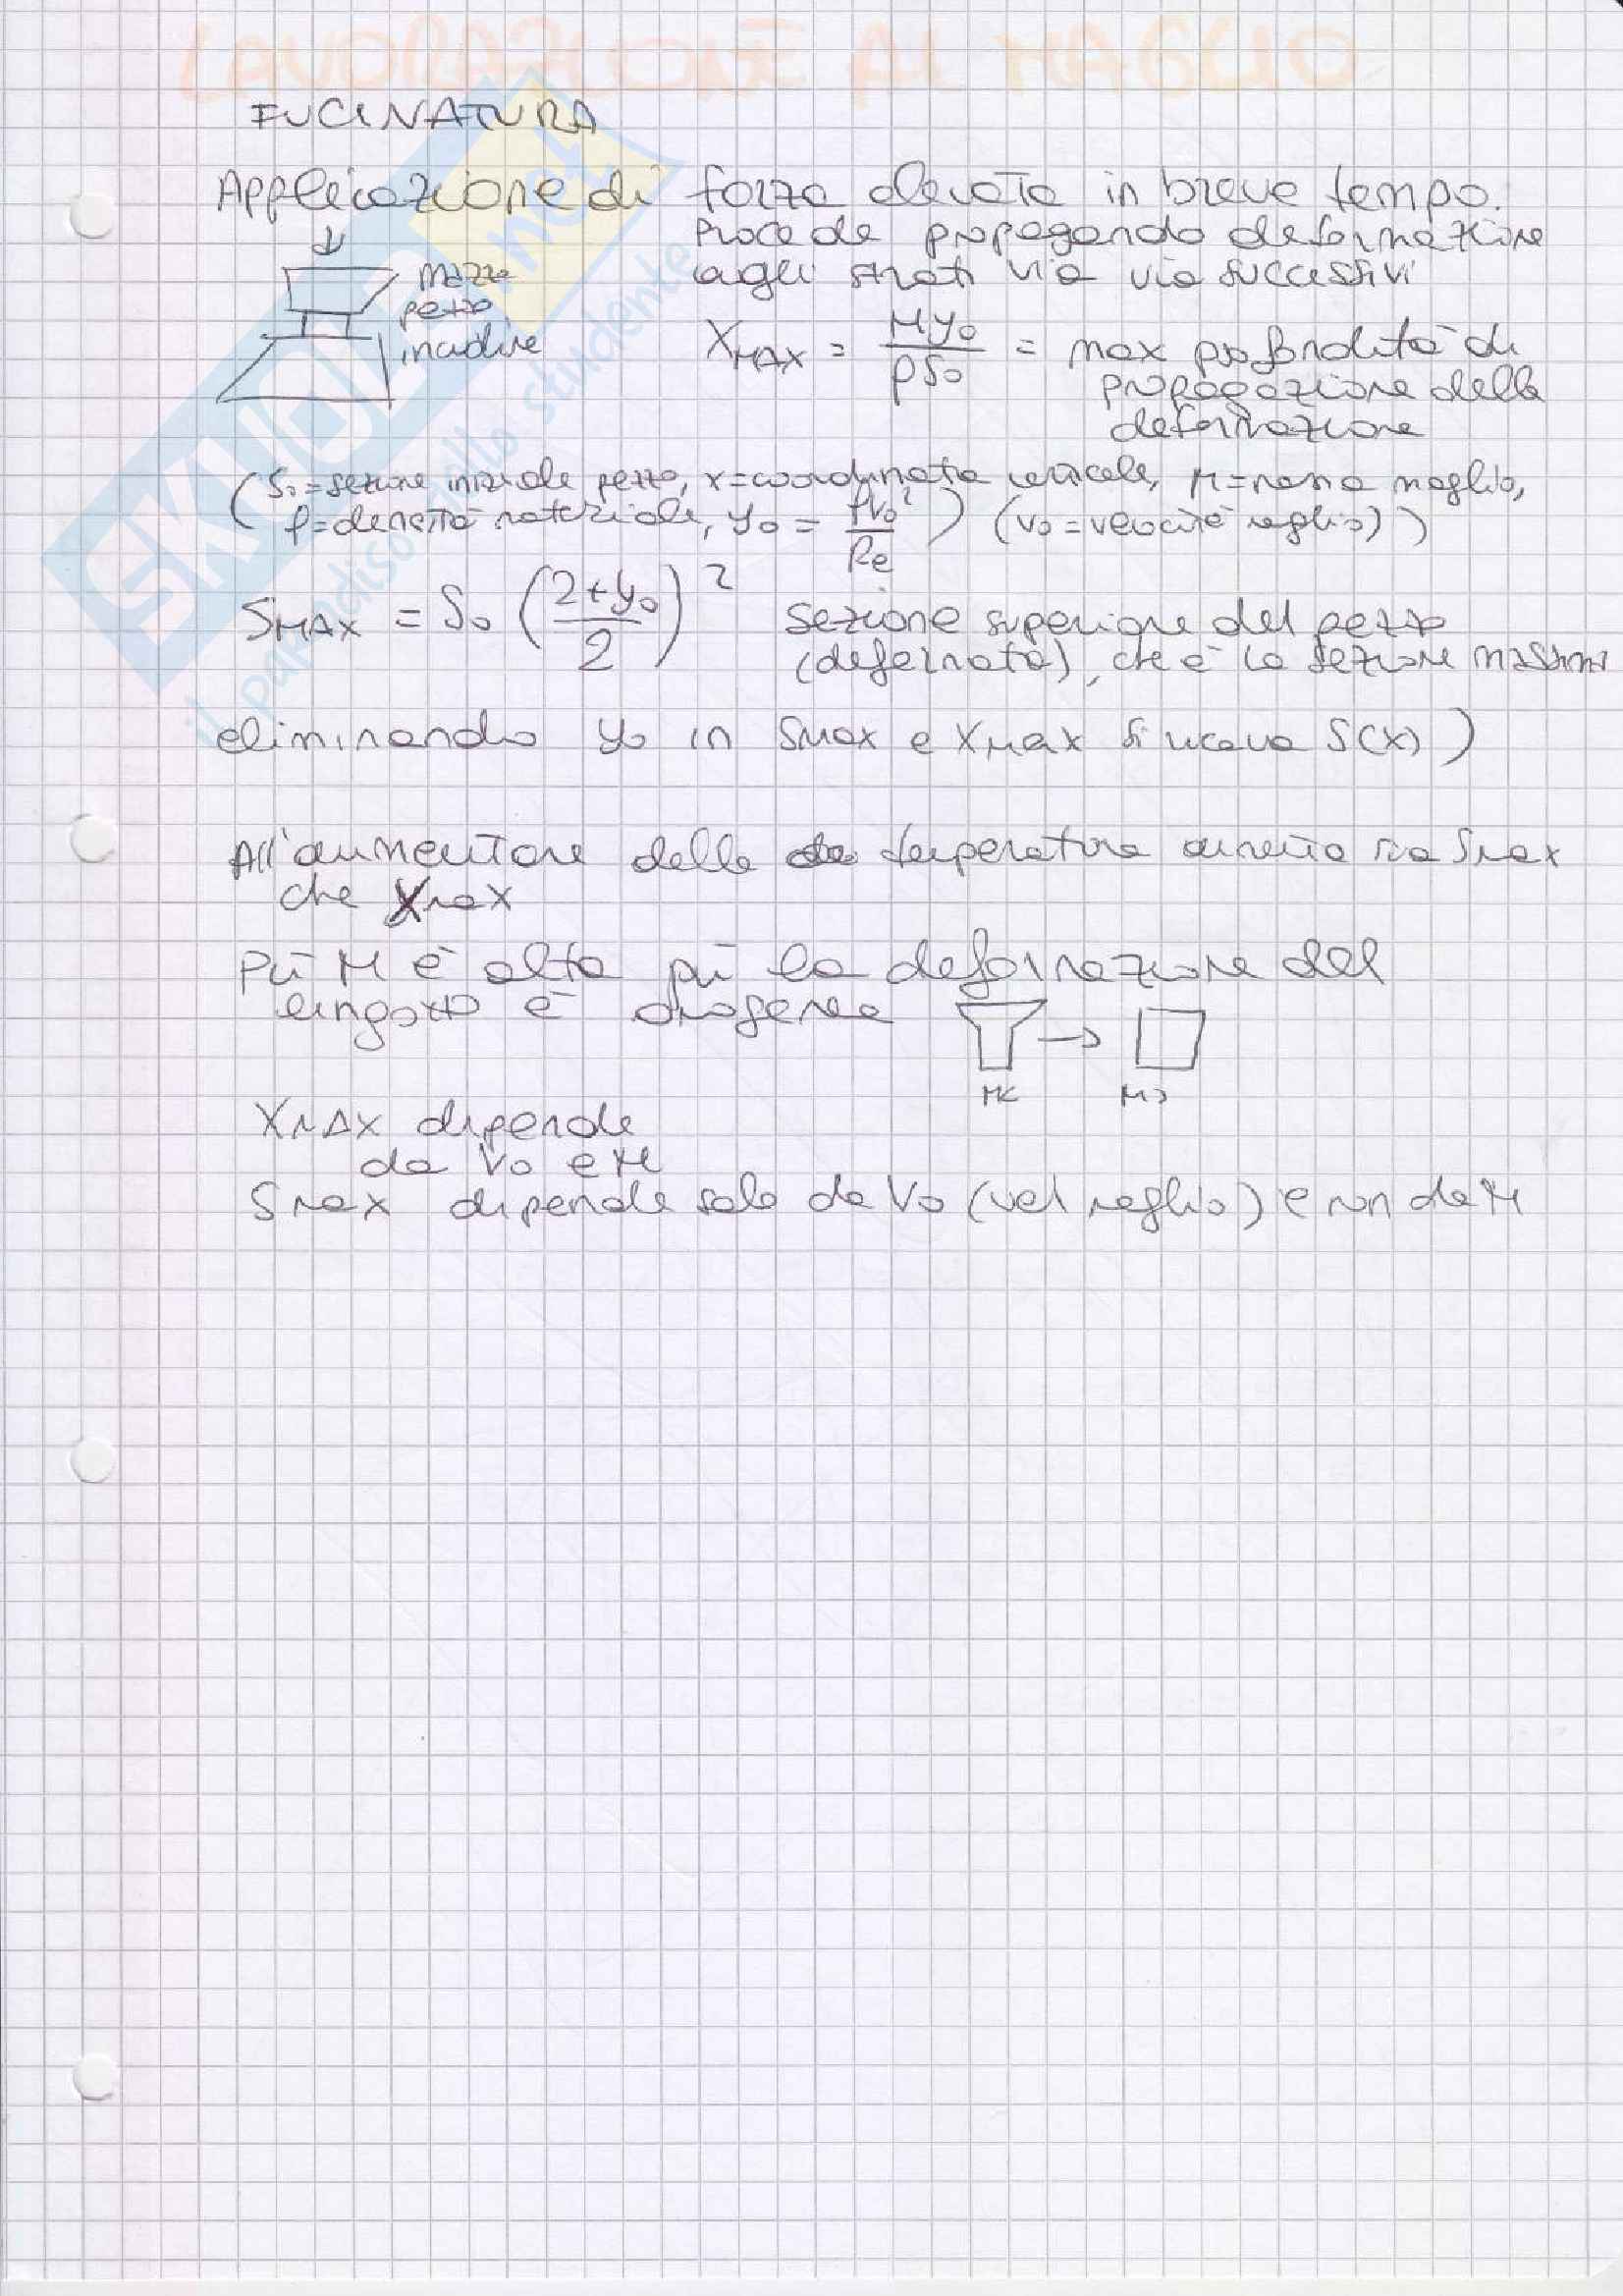 LAVORAZIONE AL MAGLIO
FUCINATURA
Applicazione di forza elevata in breve tempo.
Procede propagando deformazione
agli strati via via successivi
mazza
pezzo
incudine
X_MAX = My₀/ρS₀ = max profondità di
propagazione della
deformazione
(S₀=sezione iniziale pezzo, x=coordinata verticale, M=massa maglio,
ρ=densità materiale, y₀ = ρv₀²/Re ) (v₀=velocità maglio))
S_MAX = S₀ ((2+y₀)/2)² sezione superiore del pezzo
(deformata), che è la sezione massima
eliminando y₀ in Smax e Xmax si ricava S(x))
All'aumentare della temperatura aumenta sia Smax
che Xmax
Più M è alta più la deformazione del
lingotto è omogenea
M< M>
XMAX dipende
da V₀ e M
Smax dipende solo da V₀ (vel maglio) e non da M
SKUOLA.net
il paradiso dello studente